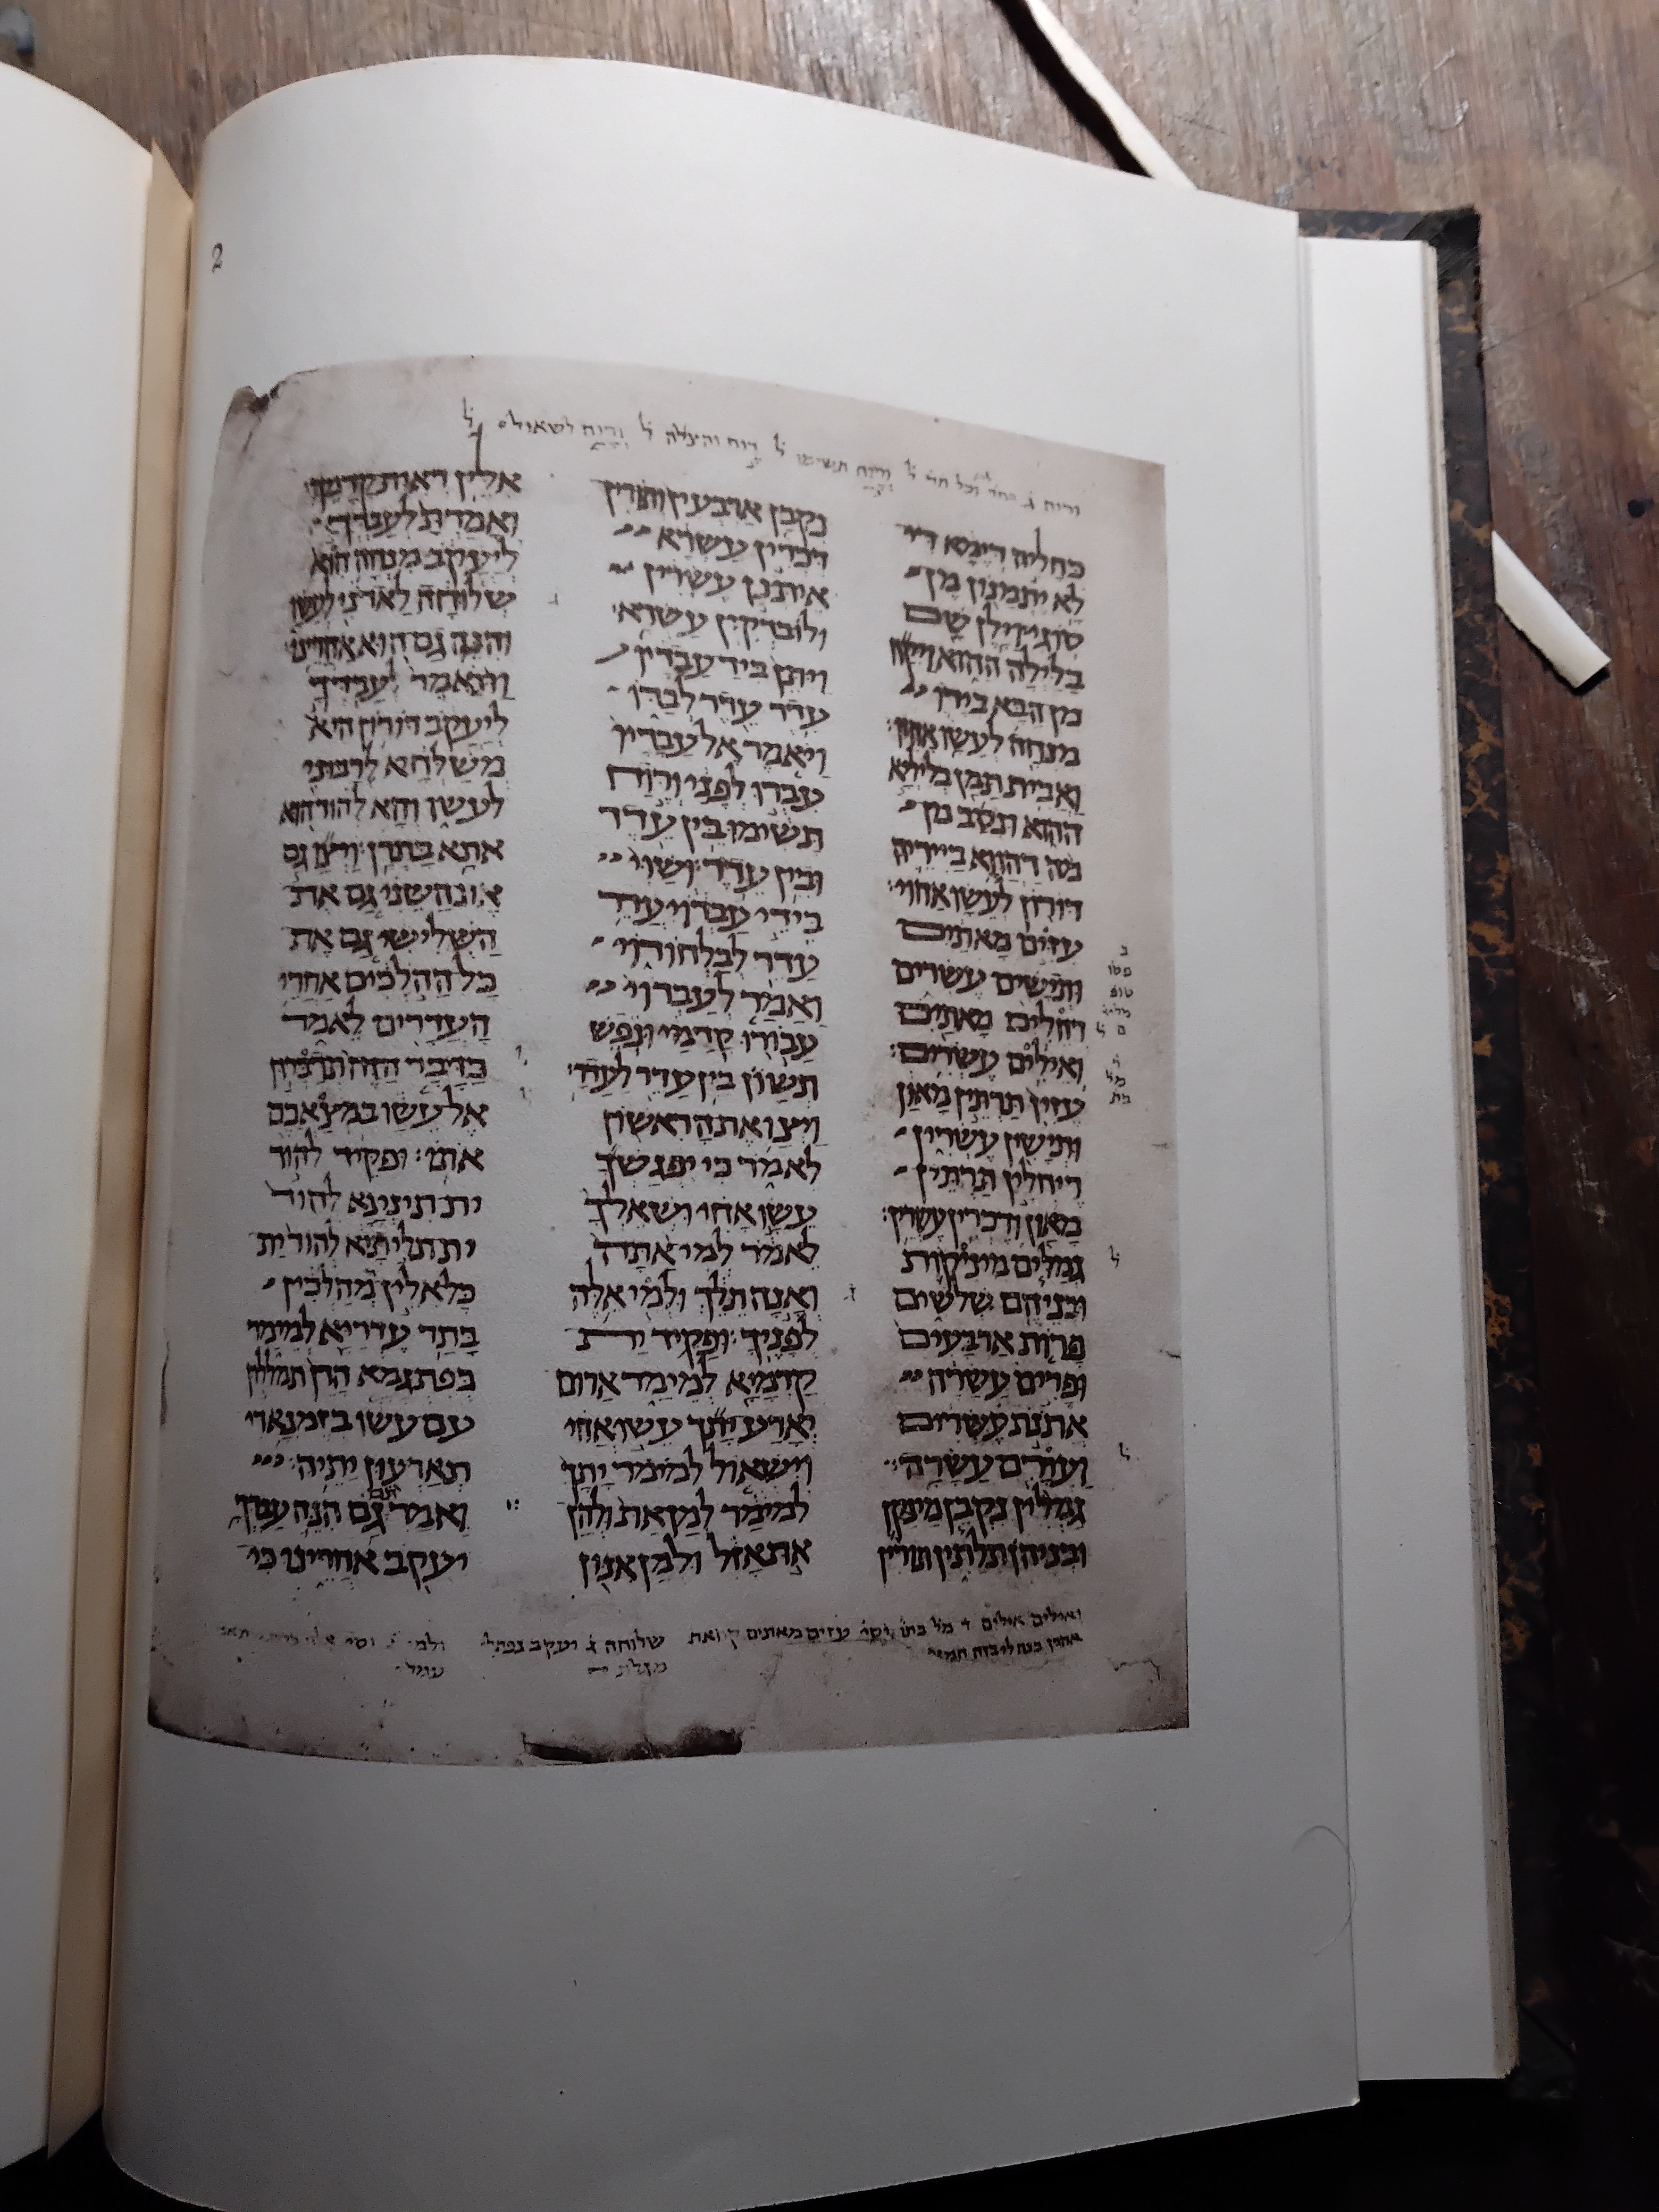 2
ורוח
כחליה דימא דיד
לא יתמנון מן
סוגי וילן שם
בלילה ההוא ויקח
מן הבא בידו
מנחה לעשו אחיו:
ובית תמן בליליא
ההוא ונסב מן
מה דהווא בידיה
דורון לעשו אחוי:
עזים מאתים
ותישים עשרים
רחלים מאתים
ואילים עשרים:
עזין תרתין מאון
ותישין עשרין
ריחלין תרתין
מאון ודכרין עשרין:
גמלים מיניקות
ובניהם שלשים
פרות ארבעים
ופרים עשרה
אתנת עשרים
ועירם עשרה:
גמלין נקבן מינקן
ובניהן תלתין תורין
נקבן ארבעין ותורין
דכרין עשרא
איתנן עשרין
ולוברקין עשרא:
ויתן ביד עבדיו
עדר עדר לבדו
ויאמר אל עבדיו
עברו לפני ורוח
תשימו בין עדר
ובין עדר: ושוי
בידי עבדוי עדר
עדר לבלחודוי
ואמר לעבדוי
עבורו קדמי ונפש
תשוון בין עדר לעדר:
ויצו את הראשון
לאמר כי יפגשך
עשו אחי ושאלך
לאמר למי אתה
ואנה תלך ולמי אלה
לפניך: ופקיד ית
קדמיא למימר ארום
יארע יתך עשו אחי
וישאול למימר יתך
למימר למן את ולהן
את אזל ולמן אנון
אלין דאית קדמך:
ואמרת לעבדך
ליעקב מנחה הוא
שלוחה לאדני לעשו
והנה גם הוא אחרינו:
ותאמר לעבדך
ליעקב דורון היא
משלחא לרבוני
לעשו והא להוד הוא
אתא בתרן: ויצו גם
את השני גם את
השלישי גם את
כל ההלכים אחרי
העדרים לאמר
כדבר הזה תדברון
אל עשו במצאכם
אתו: ופקיד להוד
ית תינינא להוד
ית תליתיא להוד ית
כל אלין מהלכין
בתר עדריא למימר
כפתגמא הדן תמללון
עם עשו בזמן ארי
תארעון יתיה:
ואמרתם גם הנה עבדך
יעקב אחרינו כי
ואילים אילים ד מל
עזים מאתים
שלוחה ג